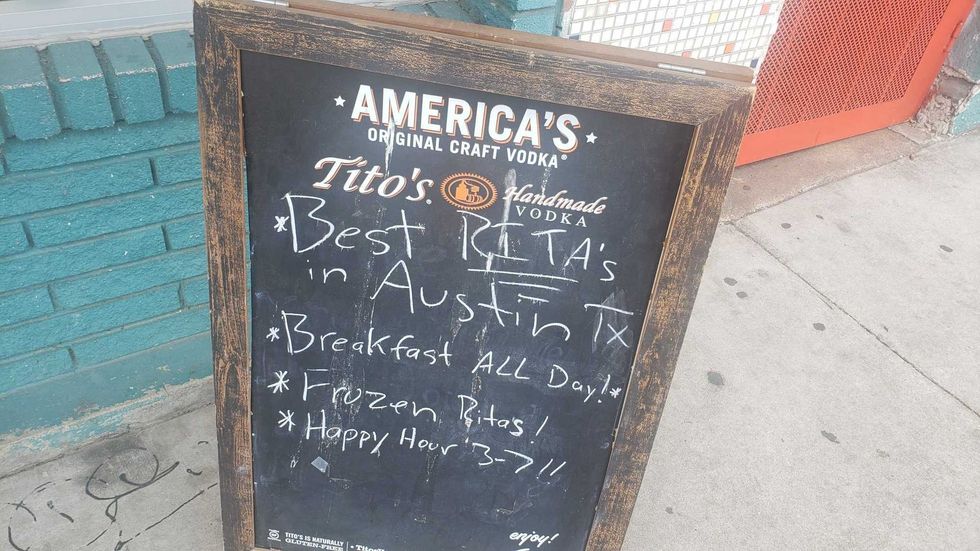 AMERICA'S
ORIGINAL CRAFT VODKA®
Tito's. Handmade
VODKA
*Best RITA's
in Austin Tx
*Breakfast ALL Day!*
* Frozen Ritas!
* Happy Hour 3-7!!
TITO'S IS NATURALLY
GLUTEN-FREE
enjoy!